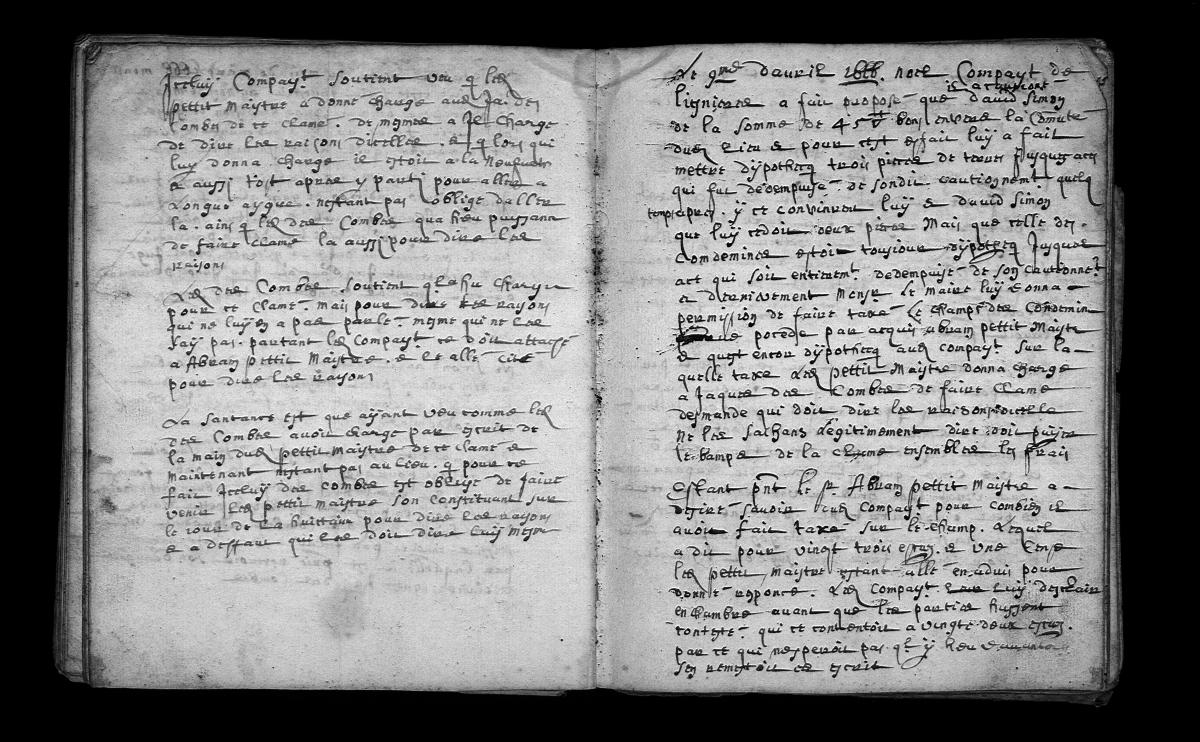 Jcelluy Compayt. soutient veu q led
pettit Maistre a donné charge aud Ja: des
Combes de ce clame. de mesme a Je charge
de dire les raisons dicelles. & q lors qui
luy donna charge il estoit a la Neufvevil
& aussi tost apres y parti pour aller a
nestant pas oblige daller
la. ains q led des Combes qua heu puissance
de faire clame la aussi pour dire les
raisons
Led des Combes soutient qla hu charge
pour ce clame. mais pour dire les raysons
qui ne luy en a pas parle. mesme qui ne les
say pas. partant led Compayt ce doit attaché
a Abram pettit Maistre. & le allé cité
pour dire les raisons
La santance est que ayant veu comme led
des Combes avoit charge par escrit de
la main dud pettit maistre de ce clame &
maintenant nestant pas au lieu. q pour ce
fait Jcelluy des combes est oblige de faire
venir led pettit maistre son constituant sur
le iour de la huittain pour dire les raysons
& a deffaut qui les doit dire luy mesme
Le 9me davril 1666. noel Compayt de
lignieres a fait propose que david Simon
de la somme de 45 bons envers la Comute
dud lieu & pour cest effait luy a fait
mettre dypothecq trois pieces de terres Jusques aces
qui fut dedempuisé de sondit cautionnemt. quelq
temps apres. y ce convinrent luy & david Simon
que luy cedoit deux pieces Mais que celle des
Condemines estoit tousiour dypotecq Jusques
act qui soit entieremt. dedempuisé de son cautionnemt
& dernierement Monsr. le maire luy donna
permission de faire taxe Le champs des Condemin
que possede par acquis abram pettit Maistre
& quest encor dypothecq aud compayt. sur la
quelle taxe led pettit Maistre donna charge
a Jaques des Combes de faire Clame
desmande qui doit dire les raisons dicelle
Ne les sachans legitimement dire doit puyer
le bamps de la clame ensembles les frais
Estant pnt le sr. Abram pettit Maistre a
desire savoir dud Compayt pour combien il
avoit fait taxe sur le champ. Lequel
a dit pour vingt trois escus & une Cense
led pettit maistre estant allé en aduis pour
donné responce. Led Compayt. luy desclair
en chambre avant que les parties hussent
conteste. qui ce contentoit a vingte deux escus.
par ce qui nesperoit pas ql y heu davantage
sen remettoit ce escrit